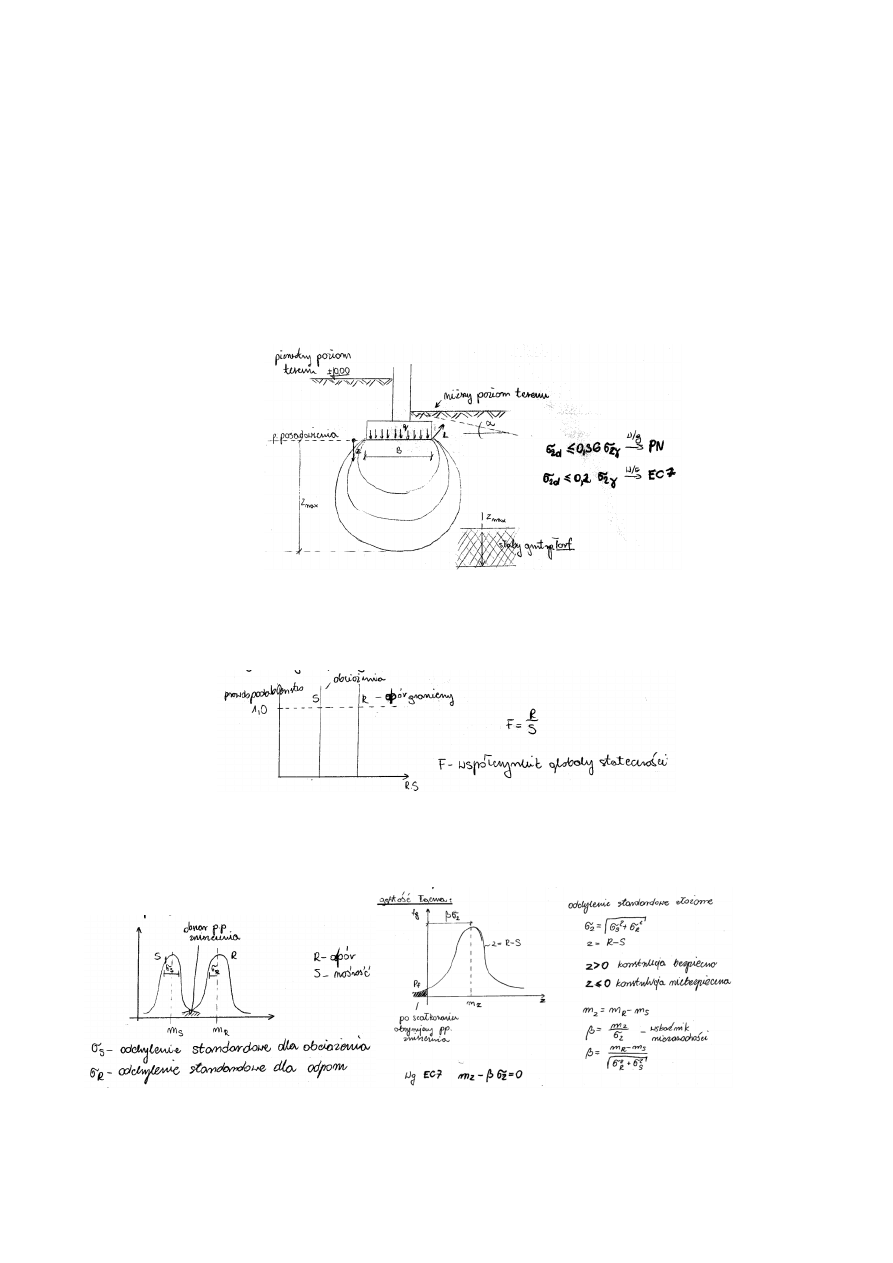 pierwotny poziom
terenu ±0,00
niższy poziom terenu
q
α
p. posadowienia
B
z
L
Zmax
σzd ≤ 0,3 σzγ w/g → PN
σzd ≤ 0,2 σzγ w/g → EC7
Zmax
słaby grunt np. Torf
prawdopodobieństwo
obciążenia
S
R – opór graniczny
1,0
R S
F = R/S
F - współczynnik globalny stateczności
obszar p.p.
zniszczenia
S
R
σS
σR
mS
mR
R - opór
S - nośność
σS - odchylenie standardowe dla obciążenia
σR - odchylenie standardowe dla oporu
gęstość łączna:
fz
βσz
z = R-S
Pf
mz
z
po scałkowaniu
otrzymujemy pp.
zniszczenia
Wg EC7 mz - βσz = 0
odchylenie standardowe złożone
σz = √(σS² + σR²)
z = R-S
z>0 konstrukcja bezpieczna
z≤0 konstrukcja niebezpieczna
mz = mR - mS
β = mz/σz - wskaźnik niezawodności
β = (mR - mS)/√(σR² + σS²)